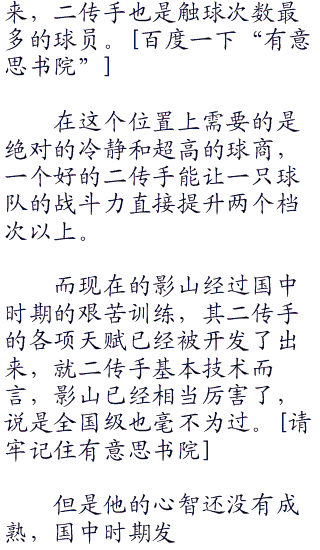 来，二传手也是触球次数最
多的球员。[百度一下“有意
思书院”]
在这个位置上需要的是
绝对的冷静和超高的球商，
一个好的二传手能让一只球
队的战斗力直接提升两个档
次以上。
而现在的影山经过国中
时期的艰苦训练，其二传手
的各项天赋已经被开发了出
来，就二传手基本技术而
言，影山已经相当厉害了，
说是全国级也毫不为过。[请
牢记住有意思书院]
但是他的心智还没有成
熟，国中时期发